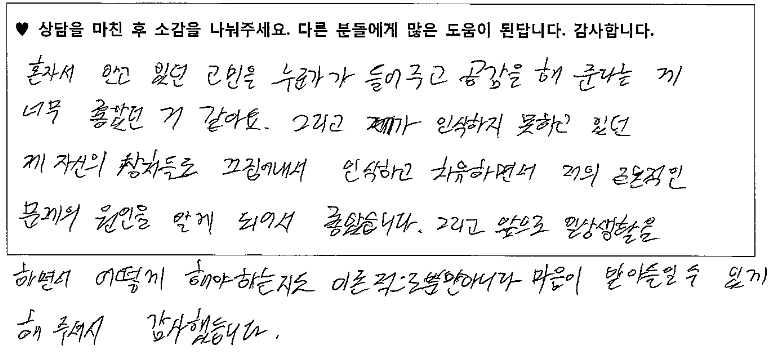 ♥ 상담을 마친 후 소감을 나눠주세요. 다른 분들에게 많은 도움이 된답니다. 감사합니다.
혼자서 안고 있던 고민을 누군가가 들어주고 공감을 해 준다는 게
너무 좋았던 거 같아요. 그리고 제가 인식하지 못하고 있던
제 자신의 상처들도 끄집어내서 인식하고 치유하면서 저의 근본적인
문제의 원인을 알게 되어서 좋았습니다. 그리고 앞으로 일상생활을
하면서 어떻게 해야하는지도 이론적으로뿐만아니라 마음이 받아들일 수 있게
해 주셔서 감사했습니다.